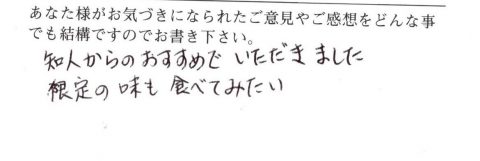 あなた様がお気づきになられたご意見やご感想をどんな事
でも結構ですのでお書き下さい。
知人からのおすすめで いただきました
限定の味も 食べてみたい